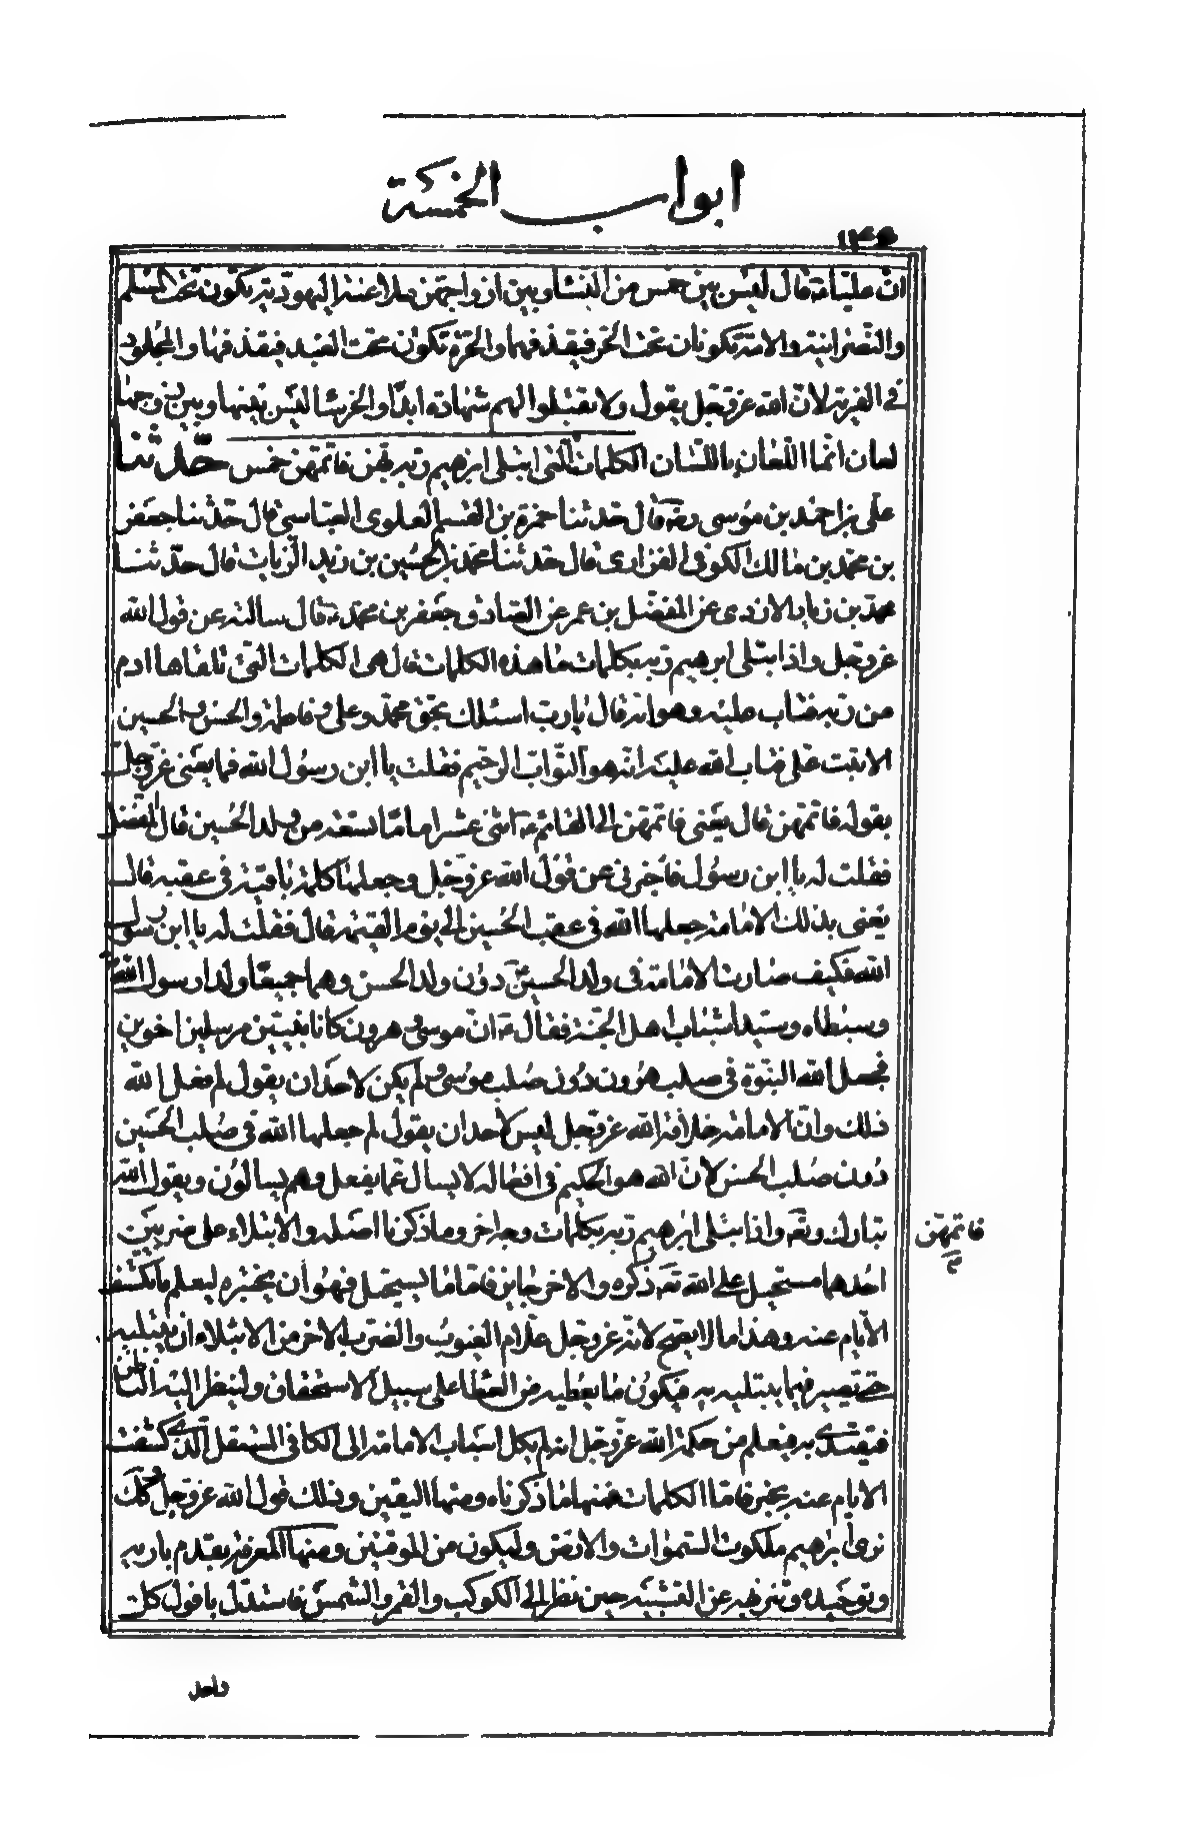 ابواب الخمسة
١٤٦
ان عليا ع قال ليس بين خمس من النساء وبين ازواجهن ملاعنة اليهودية تكون تحت المسلم
والنصرانية والامة تكونان تحت الحر فيقذفهما والحرة تكون تحت العبد فيقذفها والمجلود
في الفرية لان الله عز وجل يقول ولا تقبلوا لهم شهادة ابدا والخرساء ليس بينها وبين زوجها
لعان انما اللعان باللسان الكلمات التي ابتلى ابرهيم ربه بهن فاتمهن خمس حدثنا
علي بن احمد بن موسى رضه قال حدثنا حمزة بن القسم العلوي العباسي قال حدثنا جعفر
بن محمد بن مالك الكوفي الفزاري قال حدثنا محمد بن الحسين بن زيد الزيات قال حدثنا
محمد بن زياد الازدي عن المفضل بن عمر عن الصادق جعفر بن محمد ع قال سالته عن قول الله
عز وجل واذ ابتلى ابرهيم ربه بكلمات ما هذه الكلمات قال هى الكلمات التي تلقاها ادم
من ربه فتاب عليه وهو انه قال يا رب اسئلك بحق محمد وعلي وفاطمة والحسن والحسين
الا تبت علي فتاب الله عليه انه هو التواب الرحيم فقلت يا ابن رسول الله فما يعني عز وجل
بقوله فاتمهن قال يعني فاتمهن الى القائم ع اثنى عشر اماما تسعة من ولد الحسين قال المفضل
فقلت له يا ابن رسول فاخبرني عن قول الله عز وجل وجعلها كلمة باقية في عقبه قال
يعني بذلك الامامة جعلها الله في عقب الحسين الى يوم القيمة قال فقلت له يا ابن رسول
الله فكيف صارت الامامة في ولد الحسين دون ولد الحسن وهما جميعا ولدا رسول الله
وسبطاه وسيدا شباب اهل الجنة فقال ع ان موسى وهرون كانا نبيين مرسلين اخوين
فجعل الله النبوة في صلب هرون دون صلب موسى ولم يكن لاحد ان يقول لم فعل الله
ذلك وان الامامة خلافة الله عز وجل ليس لاحد ان يقول لم جعلها الله في صلب الحسين
دون صلب الحسن لان الله هو الحكيم في افعاله لا يسال عما يفعل وهم يسالون ويقول الله
تبارك وتع واذ ابتلى ابرهيم ربه بكلمات وجه اخر وما ذكرنا اصله والابتلاء على ضربين
فاتمهن
احدهما مستحيل على الله تع ذكره والاخر جايز فاما ما يستحيل فهو ان يختبره ليعلم ما تكشف
الايام عنه وهذا ما لا يصح لانه عز وجل علام الغيوب والضرب الاخر من الابتلاء ان يبتليه
حتى يصير فيما يبتليه به فيكون ما يعطيه من العطا على سبيل الاستحقاق ولينظر اليه الناظر
فيقتدي به فيعلم من حكمة الله عز وجل انه لم يكل اسباب الامامة الى الكافى المستقل الذي كشفت
الايام عنه بخبر فاما الكلمات فمنها ما ذكرناه ومنها اليقين وذلك قول الله عز وجل وكذلك
نرى ابرهيم ملكوت السموات والارض وليكون من الموقنين ومنها المعرفة بقدم باريه
وتوحيده وتنزيهه عن التشبيه حين نظر الى الكوكب والقمر والشمس فاستدل بافول كل
واحد